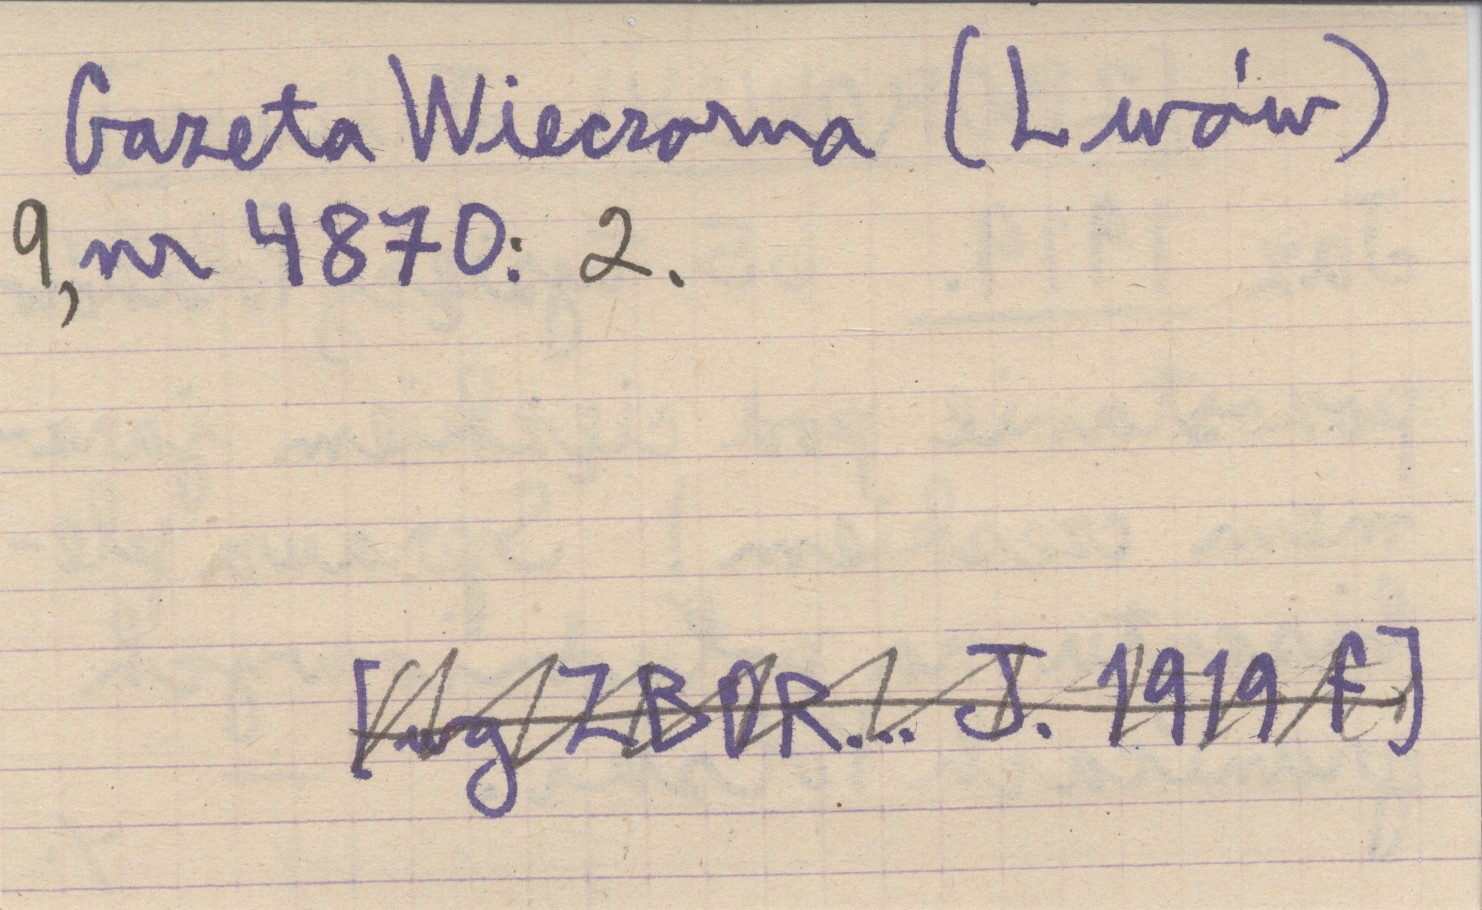 Gazeta Wieczorna (Lwów)
9, nr 4870: 2.
[wg ZBOR... J. 1919 f]